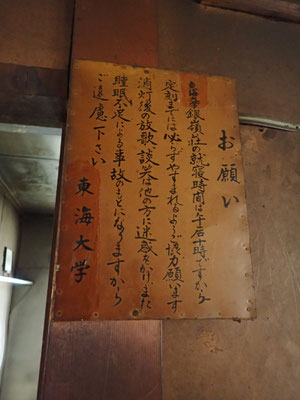 お願い
東海大学銀嶺荘の就寝時間は午后十時ですから
定刻までには必らずやすまれるようご協力願います
消灯後の放歌、談笑は他の方に迷惑をかけ、また
睡眠不足による事故のもとになりますから
ご遠慮下さい
東海大学